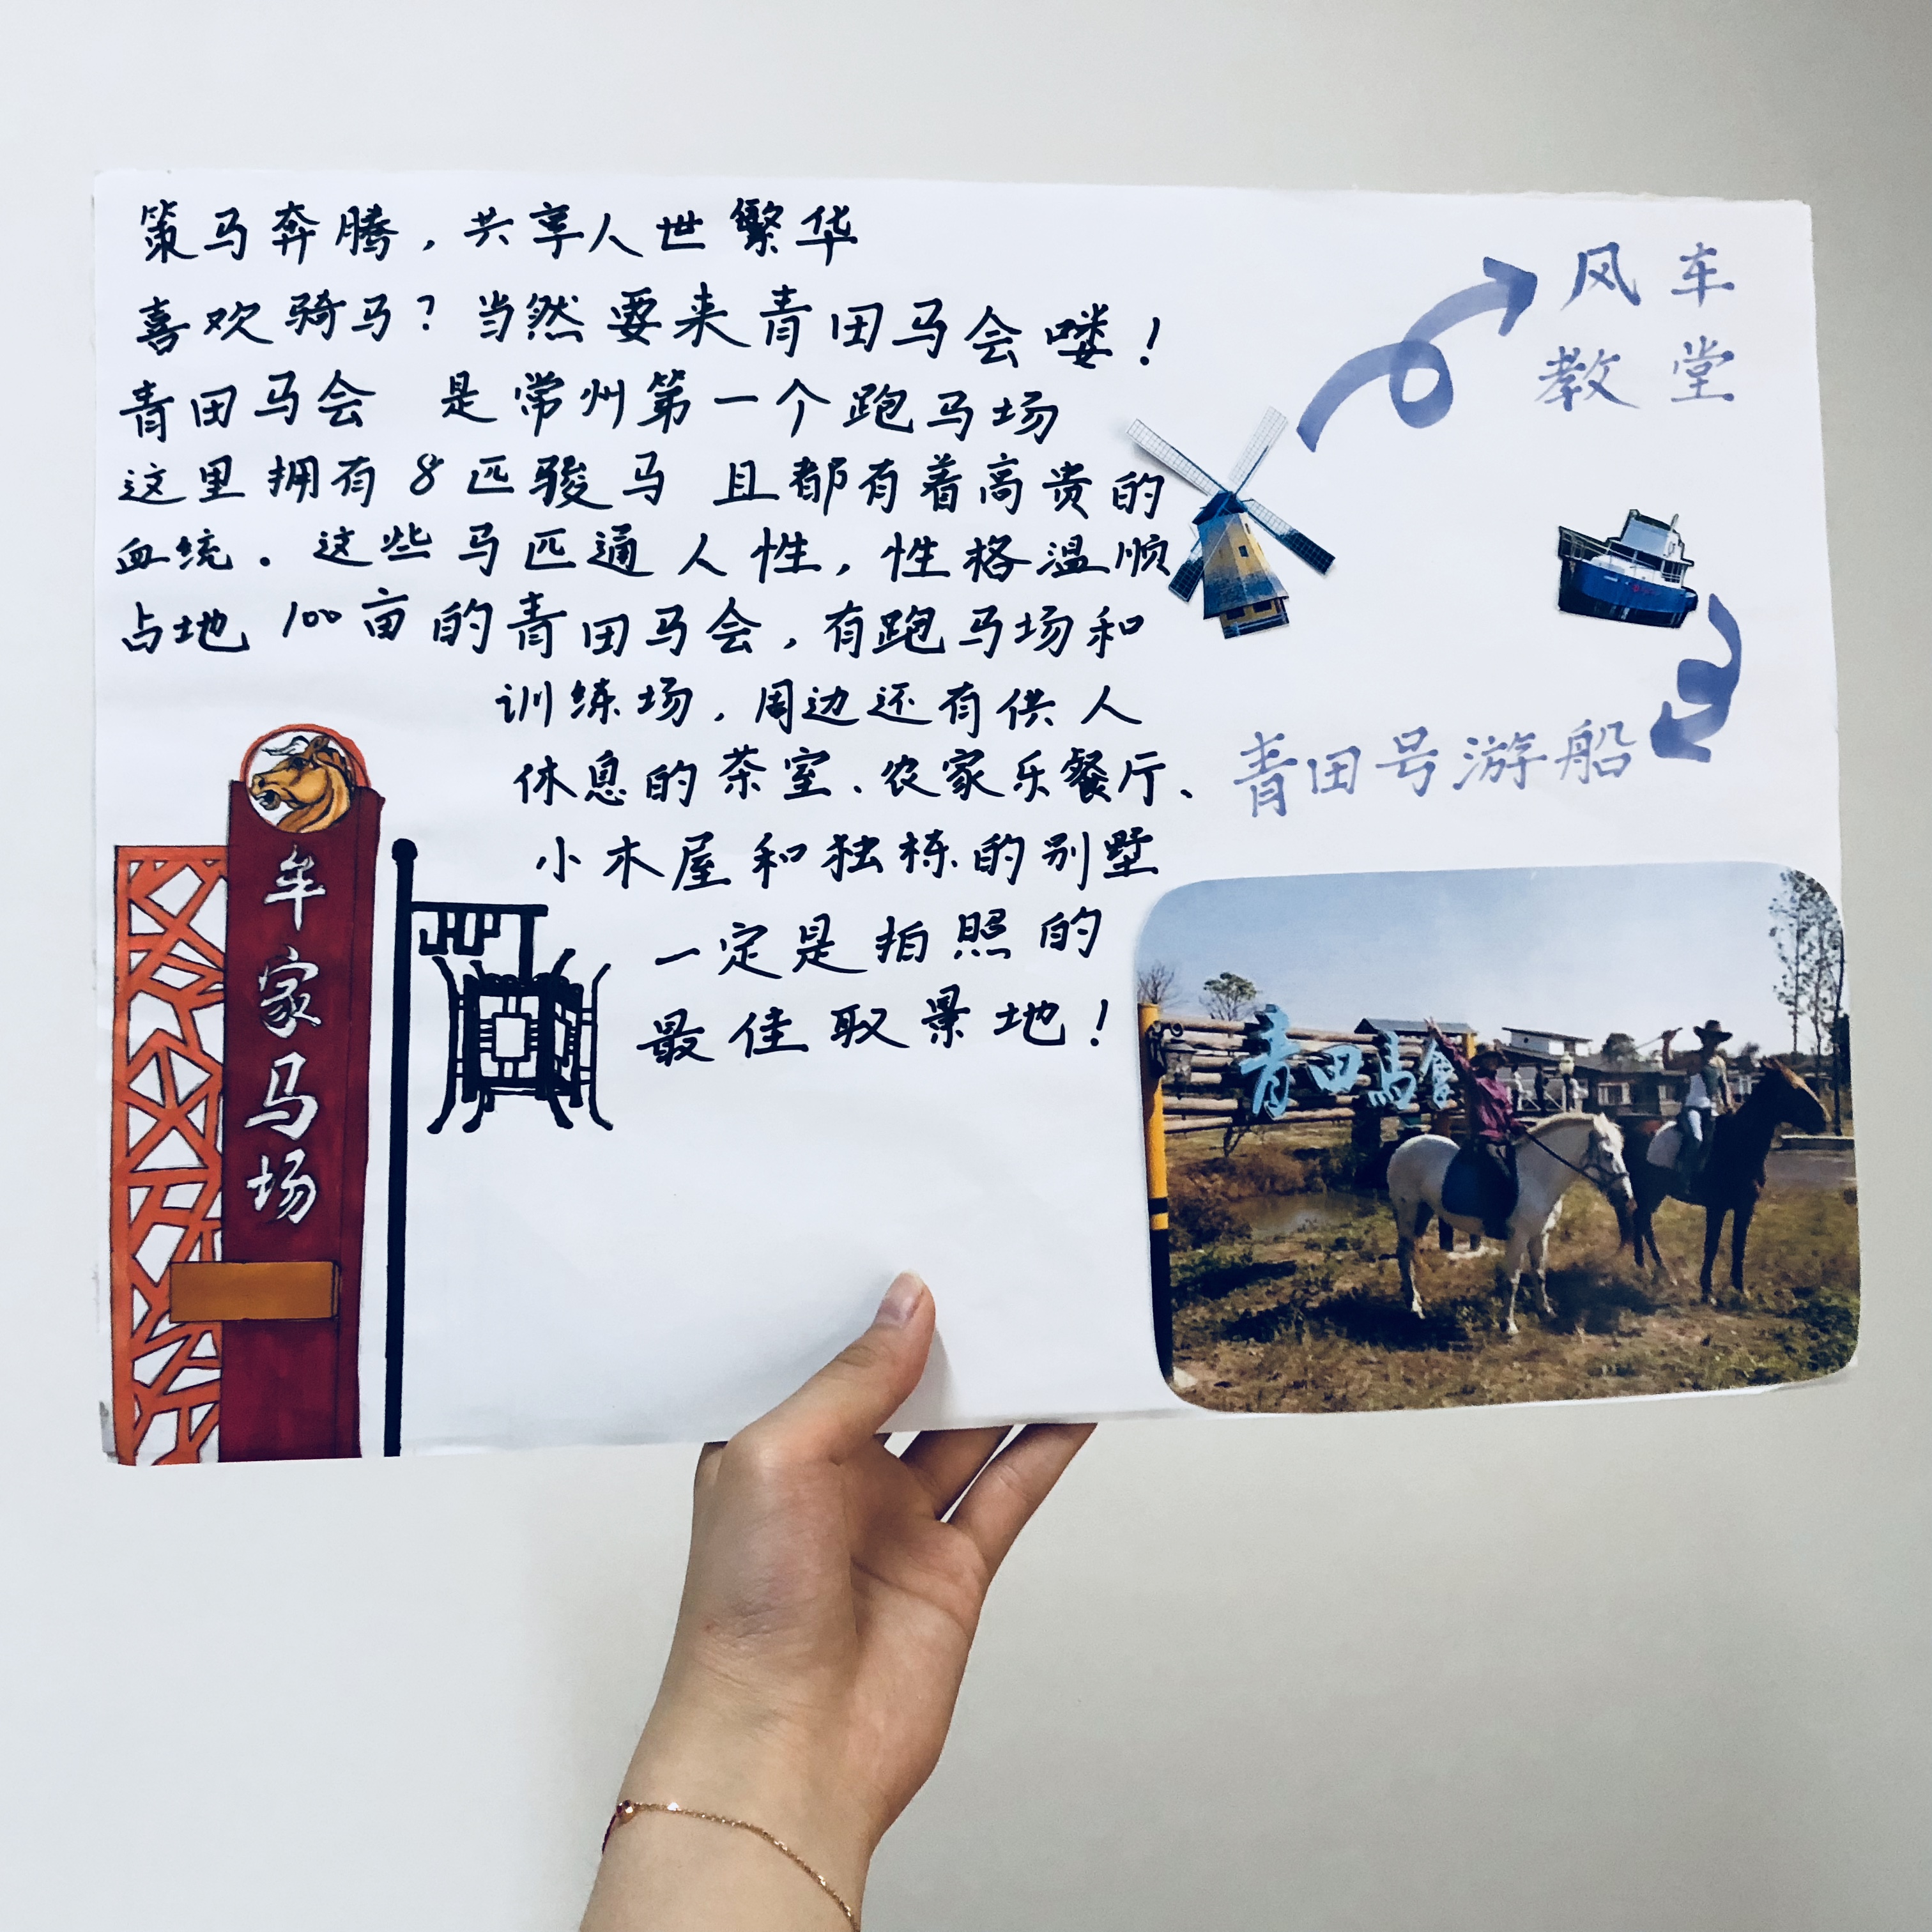 策马奔腾，共享人世繁华
喜欢骑马？当然要来青田马会喽！
青田马会 是常州第一个跑马场
这里拥有8匹骏马 且都有着高贵的
血统．这些马匹通人性，性格温顺
占地100亩的青田马会，有跑马场和
训练场，周边还有供人
休息的茶室、农家乐餐厅、
小木屋和独栋的别墅
一定是拍照的
最佳取景地！
风车
教堂
青田号游船
牟家马场
青田马會